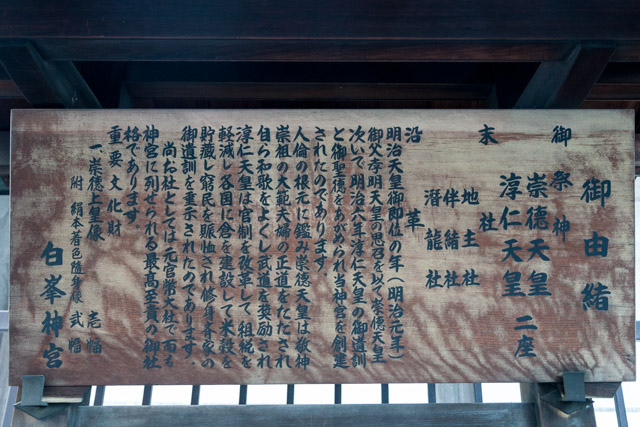 御由緒
御祭神
崇徳天皇
淳仁天皇 二座
末社
地主社
伴緒社
潜龍社
沿革
明治天皇御即位の年(明治元年)
御父孝明天皇の思召を以て崇徳天皇
次いで明治六年淳仁天皇の御遺訓
と御聖徳をあがめられ当神宮を創建
されたのであります。
人倫の根元に鑑み崇徳天皇は敬神
崇祖の大範夫婦の正道をたゞされ
自ら和歌をよくし武道を奨励され
淳仁天皇は官制を改革して租税を
軽減し各国に倉を建設して米穀を
貯蔵し窮民を賑恤され修身斉家の
御遺訓を垂示されたのであります。
尚お社としては元官幣大社で而も
神宮に列せられる最高至貴の御社
格であります。
重要文化財
一、崇徳上皇像 壱幅
附 絹本着色随身像 弐幅
白峯神宮